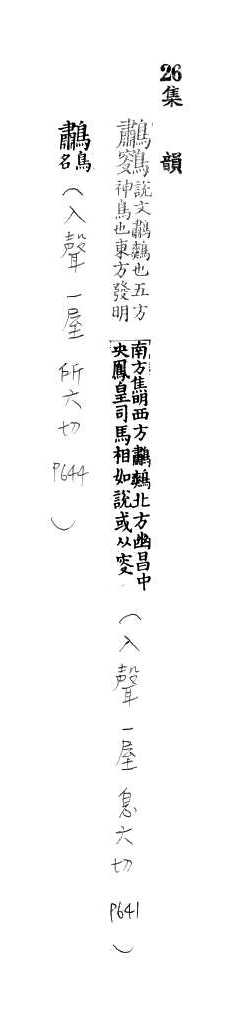 26 集 韻
鷫
說文鷫鷞也五方
神鳥也東方發明
南方焦明西方鷫鷞北方幽昌中
央鳳皇司馬相如說或从叜
(入聲 一屋 息六切 P641)
鷫
鳥
名
(入聲 一屋 所六切 P644)